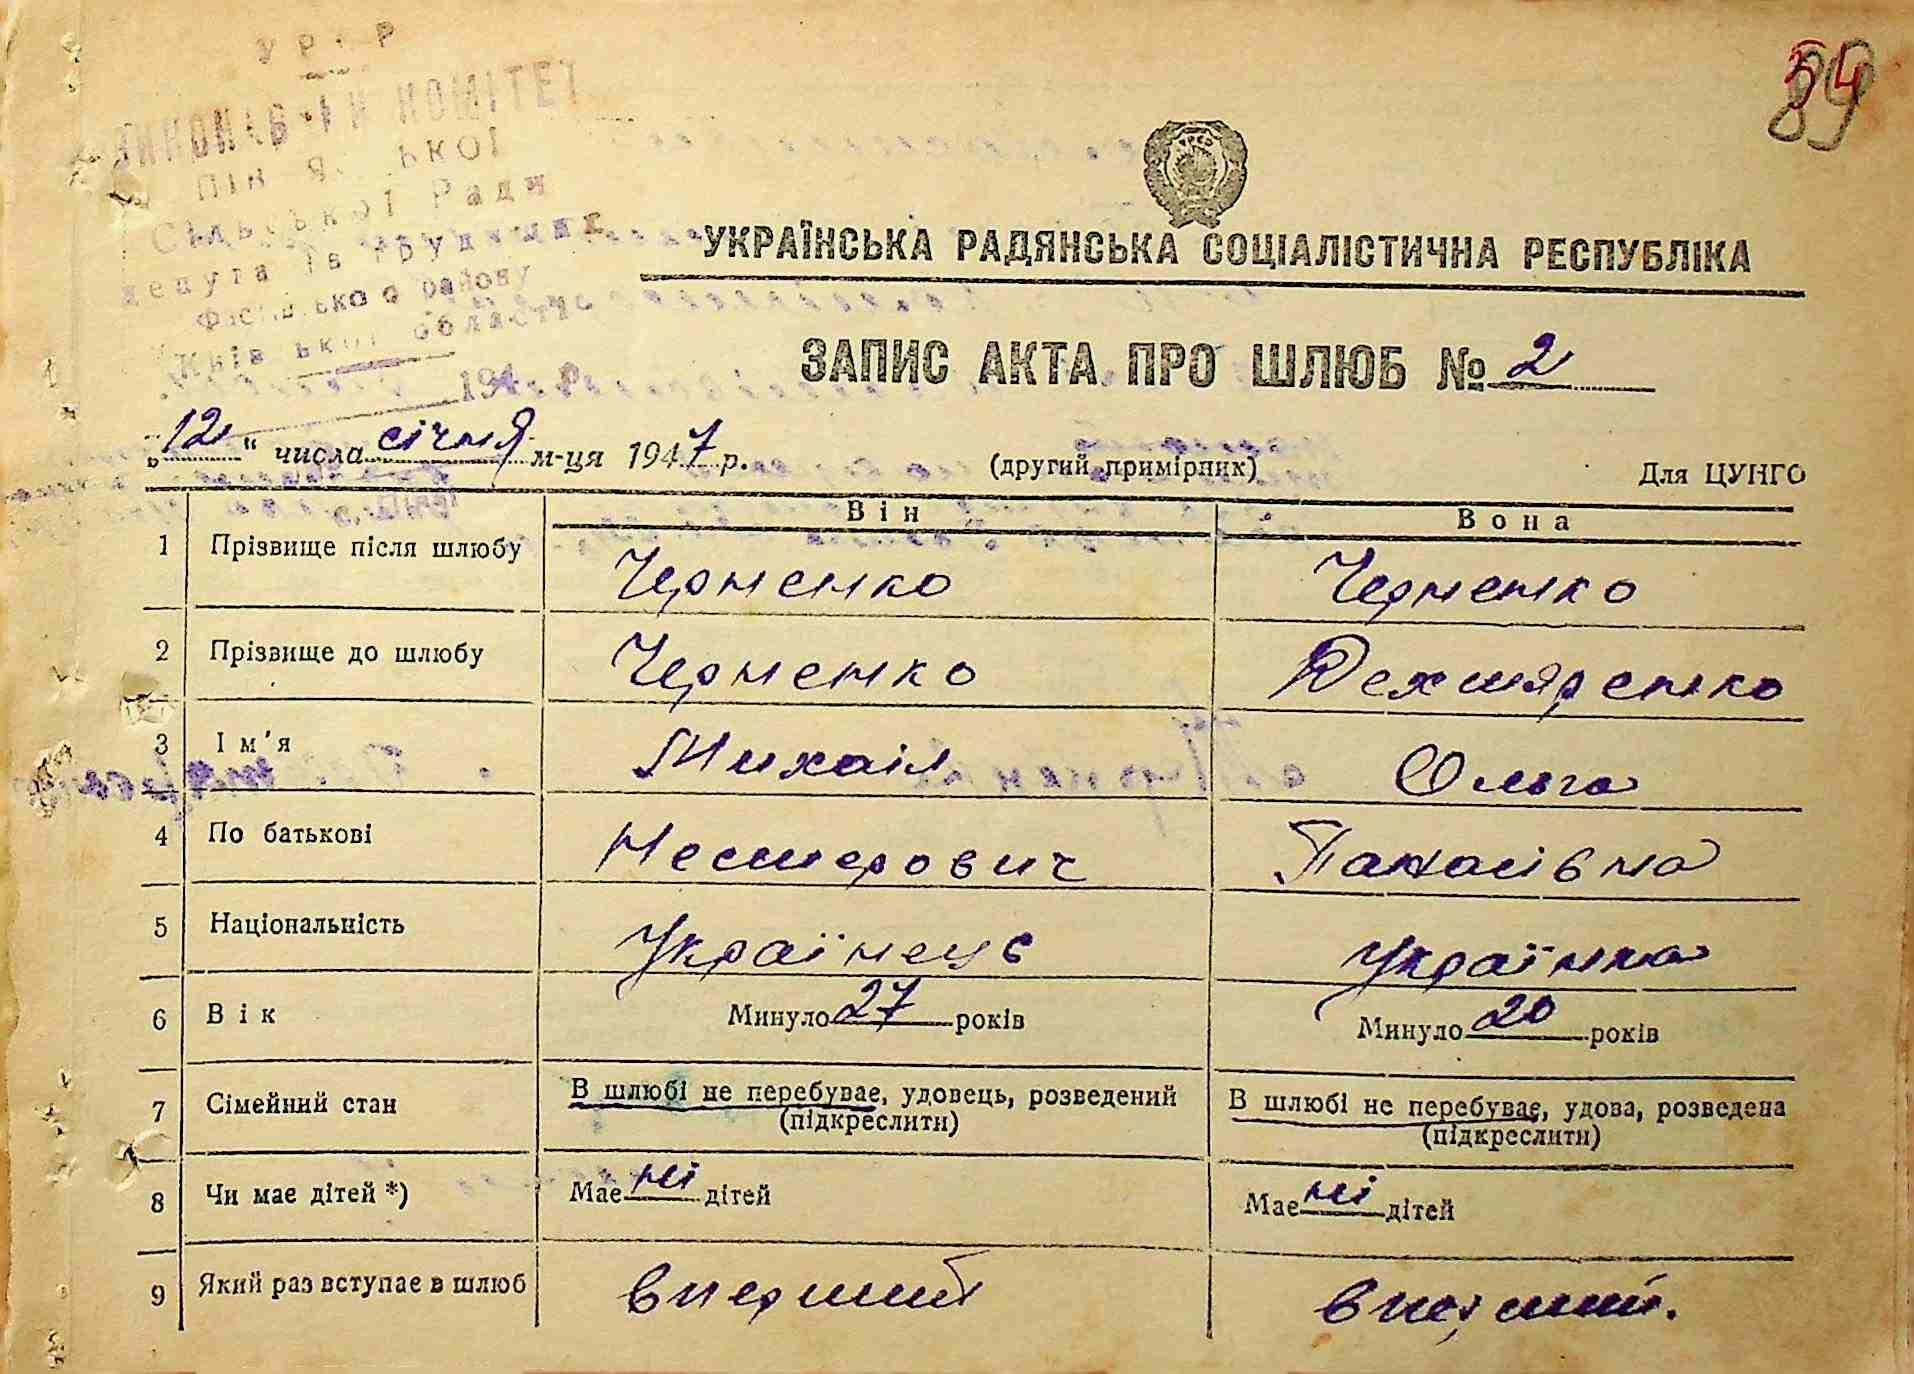 54
89
КОМІТЕТ
Сільської Ради
району
області
194 р.
УКРАЇНСЬКА РАДЯНСЬКА СОЦІАЛІСТИЧНА РЕСПУБЛІКА
ЗАПИС АКТА ПРО ШЛЮБ № 2
„12“ числа січня м-ця 1947 р. (другий примірник) Для ЦУНГО
Він Вона
1 Прізвище після шлюбу Черненко Черненко
2 Прізвище до шлюбу Черненко Дехтяренко
3 Ім'я Михаіл Ольга
4 По батькові Несторович Панасівна
5 Національність Українець Українка
6 Вік Минуло 27 років Минуло 20 років
7 Сімейний стан В шлюбі не перебуває, удовець, розведений В шлюбі не перебуває, удова, розведена
(підкреслити) (підкреслити)
8 Чи має дітей *) Має ні дітей Має ні дітей
9 Який раз вступає в шлюб вперший вперший.